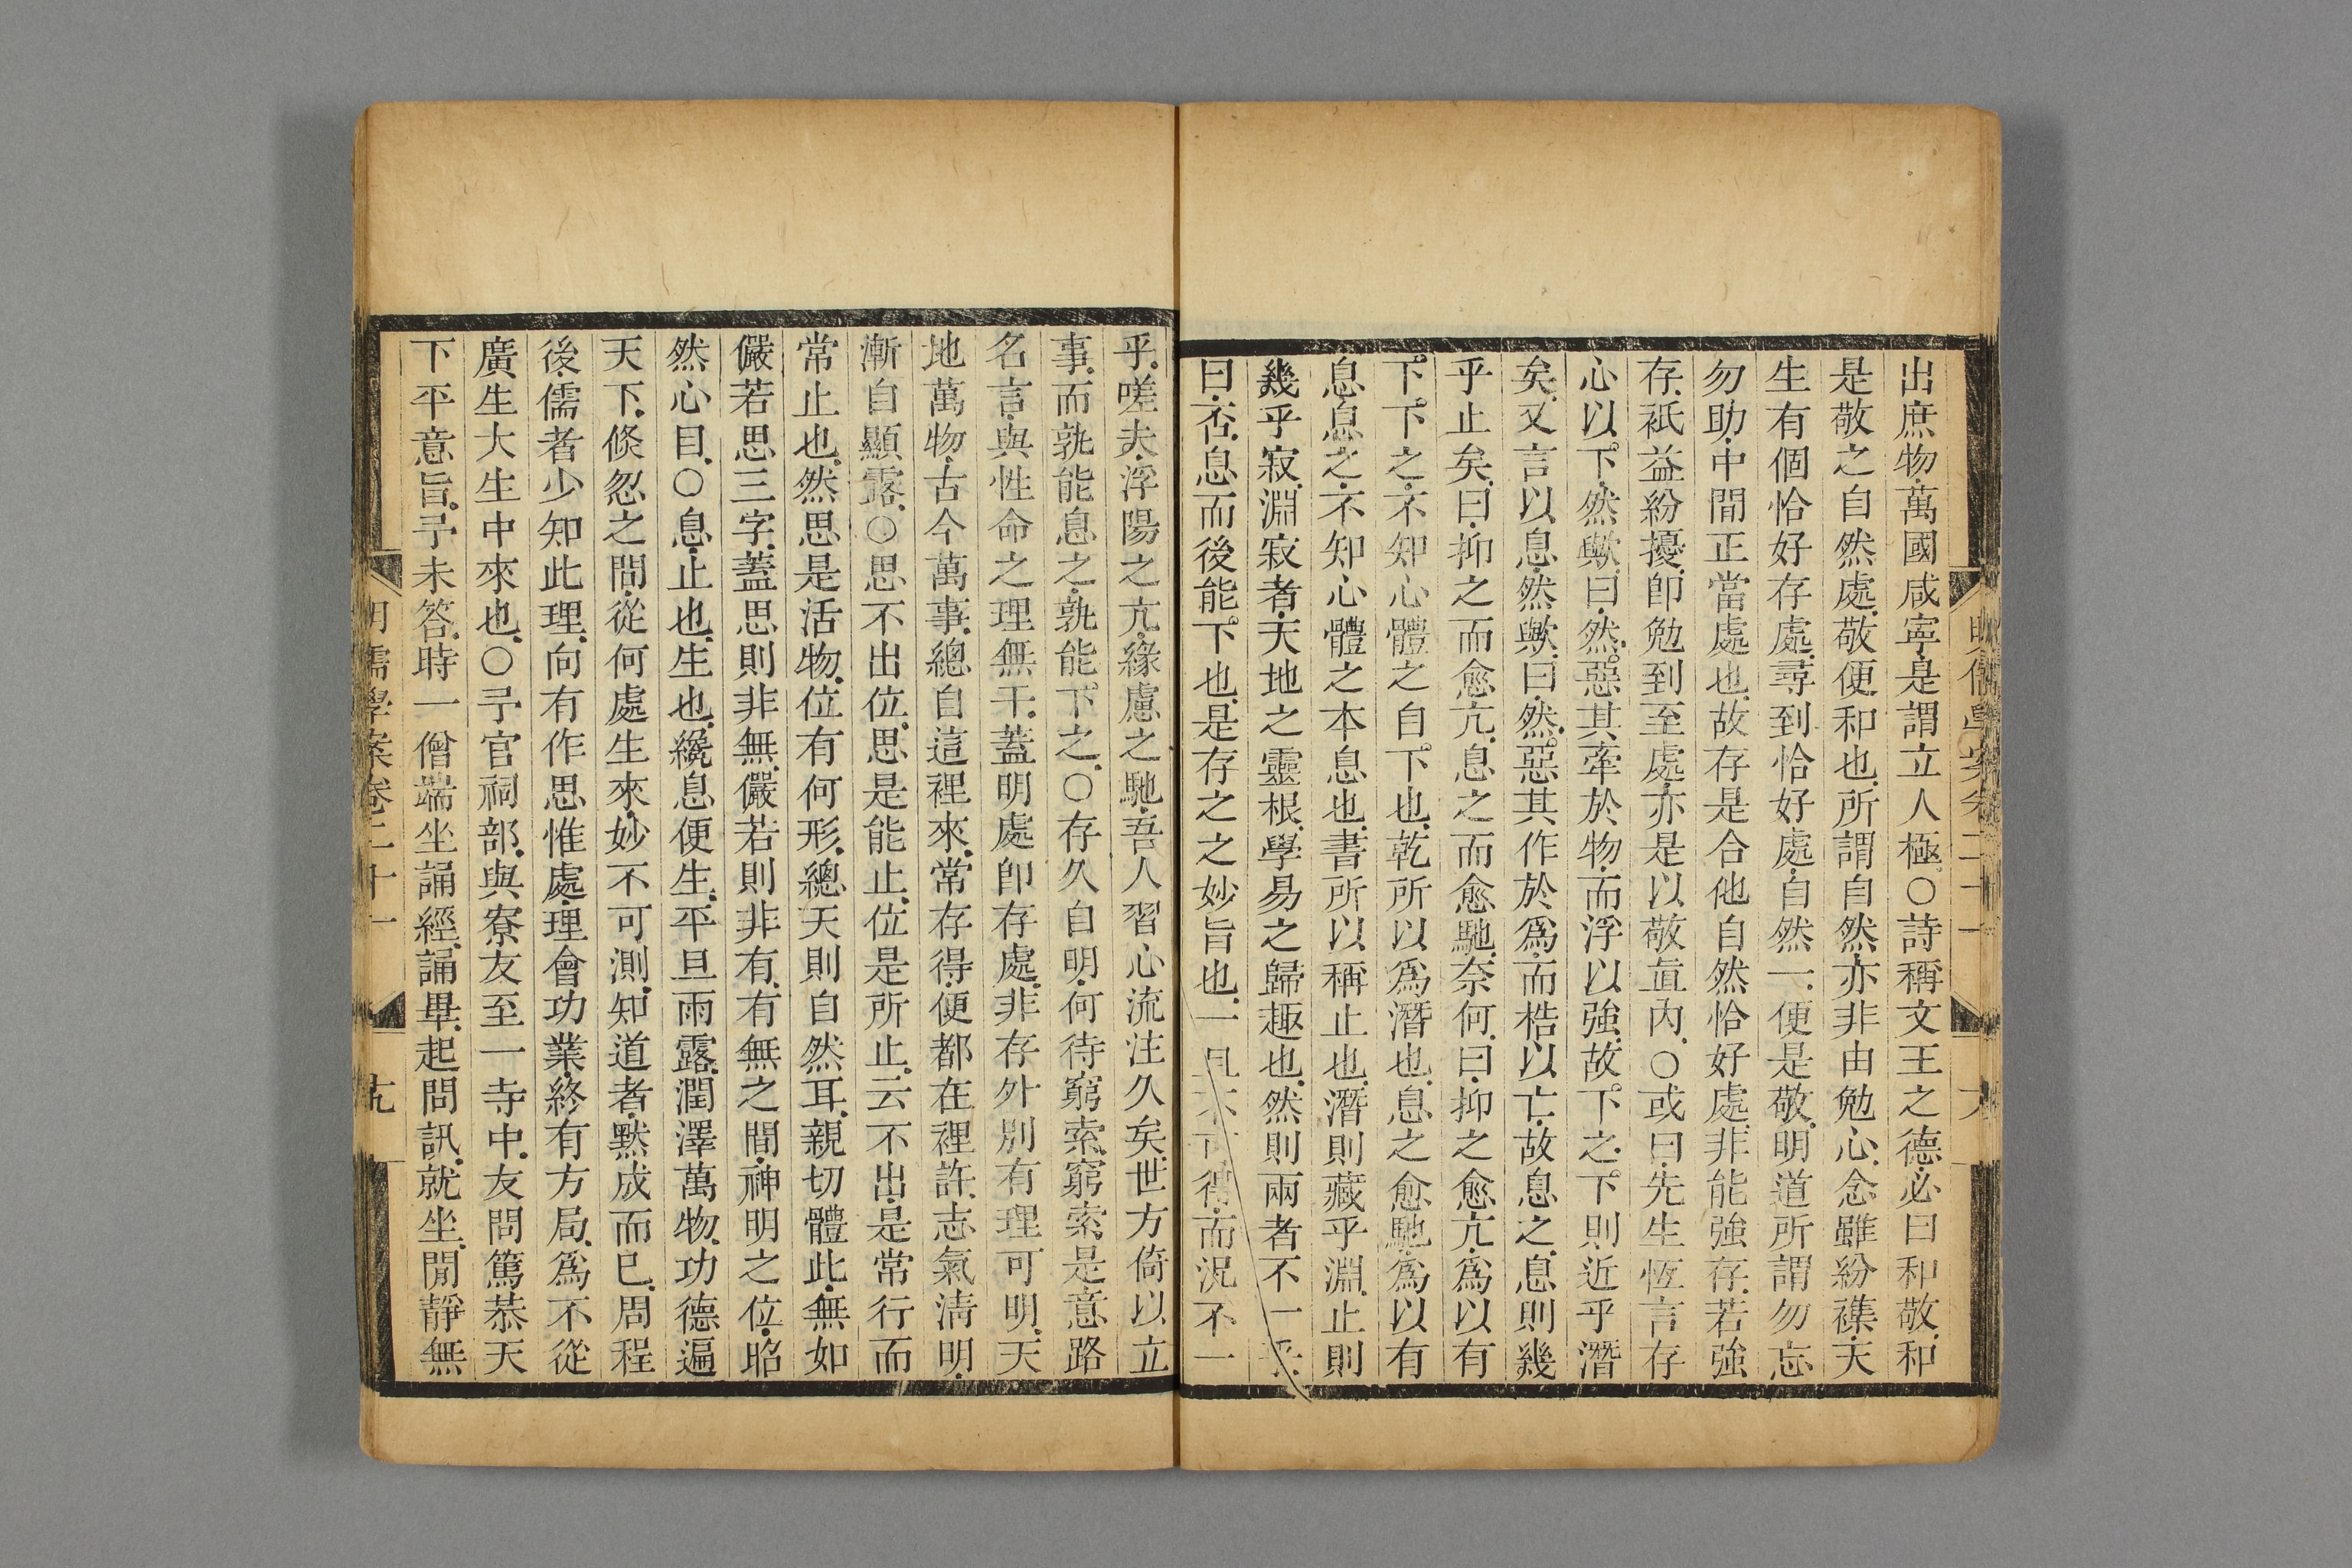 出庶物萬國咸寧是謂立人極○詩稱文王之德必曰和敬和
是敬之自然處敬便和也所謂自然亦非由勉心念雖紛襍天
生有個恰好存處尋到恰好處自然一便是敬明道所謂勿忘
勿助中間正當處也故存是合他自然恰好處非能強存若強
存祇益紛擾卽勉到至處亦是以敬直內○或曰先生恆言存
心以下然歟曰然惡其牽於物而浮以強故下之下則近乎潛
矣又言以息然歟曰然惡其作於爲而梏以亡故息之息則幾
乎止矣曰抑之而愈亢息之而愈馳奈何曰抑之愈亢爲以有
下下之不知心體之自下也乾所以爲潛也息之愈馳爲以有
息息之不知心體之本息也書所以稱止也潛則藏乎淵止則
幾乎寂淵寂者天地之靈根學易之歸趣也然則兩者不一乎
曰否息而後能下也是存之之妙旨也一且不可得而況不一
乎嗟夫浮陽之亢緣慮之馳吾人習心流注久矣世方倚以立
事而孰能息之孰能下之○存久自明何待窮索窮索是意路
名言與性命之理無干蓋明處卽存處非存外別有理可明天
地萬物古今萬事總自這裡來常存得便都在裡許志氣淸明
漸自顯露○思不出位思是能止位是所止云不出是常行而
常止也然思是活物位有何形總天則自然耳親切體此無如
儼若思三字蓋思則非無儼若則非有有無之間神明之位昭
然心目○息止也生也纔息便生平旦雨露潤澤萬物功德遍
天下倏忽之間從何處生來妙不可測知道者默成而已周程
後儒者少知此理向有作思惟處理會功業終有方局爲不從
廣生大生中來也○予官祠部與寮友至一寺中友問篤恭天
下平意旨予未答時一僧端坐誦經誦畢起問訊就坐閒靜無
明儒學案卷二十一